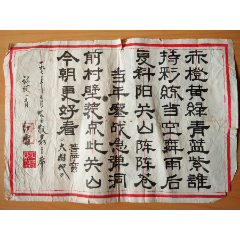 赤橙黄綠青蓝紫誰
持彩練当空舞雨后
复斜阳关山阵阵苍
当年鏖战急弹洞
前村壁装点此关山
今朝更好看
菩萨蛮
大柏地